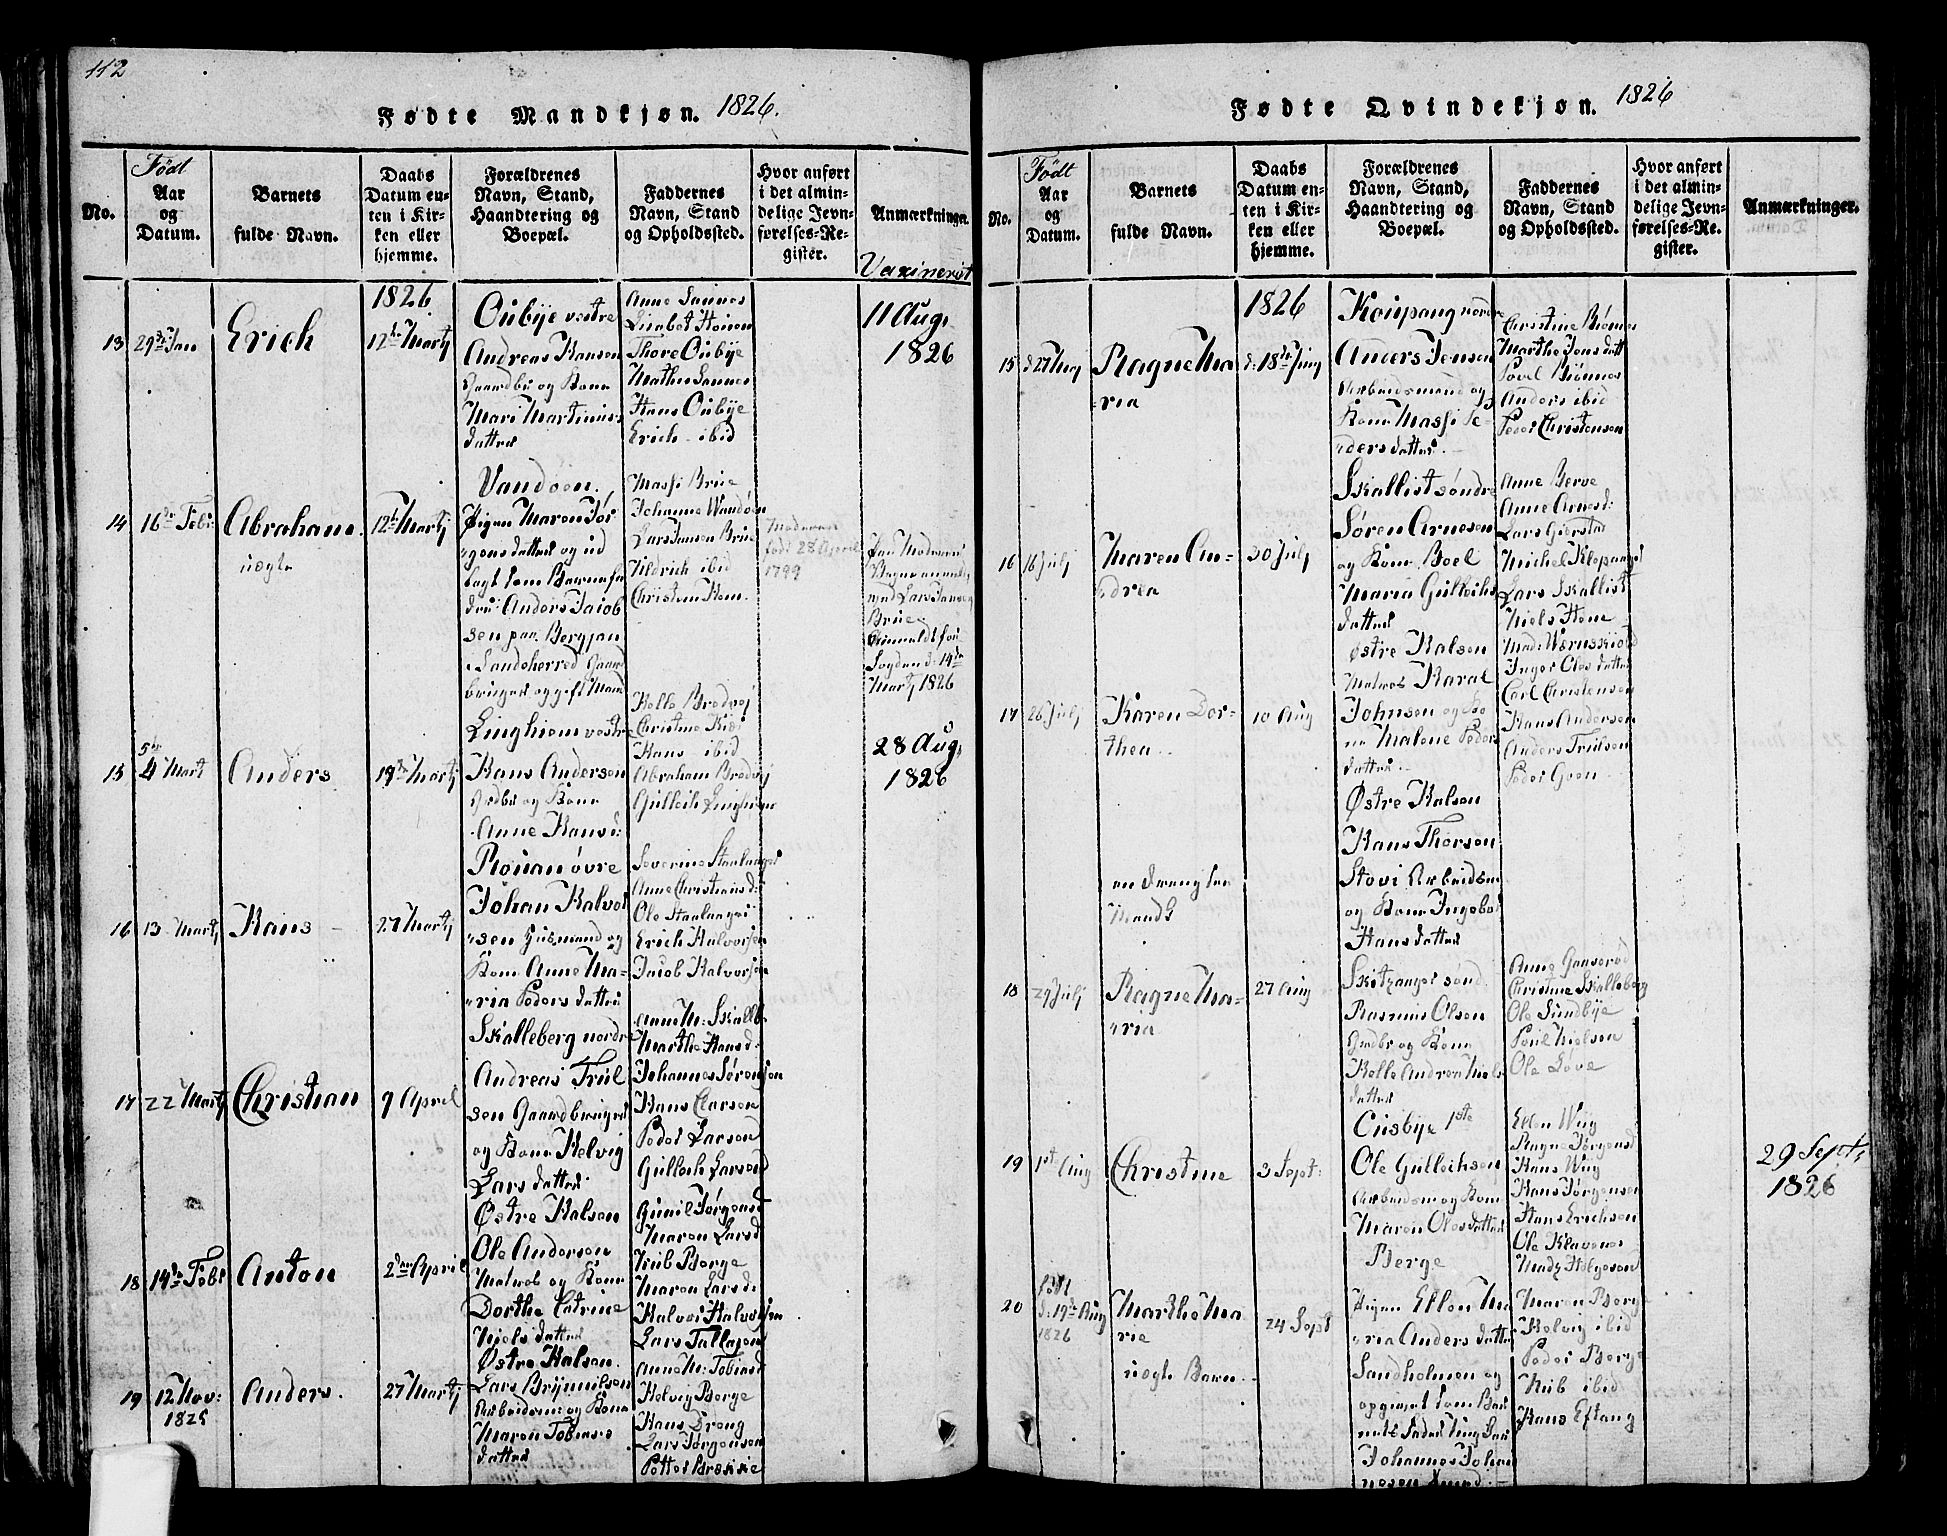 112
Fødte Mandkjøn. 1826.
No.
Født
Aar
og
Datum.
Barnets
fulde Navn.
Daabs
Datum en-
ten i Kir-
ken eller
hjemme.
Forældrenes
Navn, Stand,
Haandtering og
Boepæl.
Faddernes
Navn, Stand
og Opholdssted.
Hvor anført
i det almin-
delige Jevn-
førelses-Re-
gister.
Anmærkninger.
Vaxineret
1826
13
29de Jan
Erich
12te Martj
Ousbye vestre
Andreas Hansen
Gaardbr og Kone
Mari Martinus-
datter
Anne Sannes
Lisabet Honen
Thore Ousbye
Mathis Sannes
Hans Ousbye
Erich ibid
11 Aug.
1826
14
16de Febr:
Abraham
uægte
12te Martj
Vandøen.
Pigen Maren Jør-
gensdatter og ud
lagt som Barnefa
der: Anders Jacob
sen paa Bergjan
Sandeherred Gaard
bruger og gift Mand
Massi Brue
Johanne Wandøen
Lars Jansen Brue
Christen Hem.
Moderen
født 28 April
1799
med Lars Jansen
Brue
14de
Martj 1826
15
5te
4 Mart
Anders
19de Martj
Linghiem vestre
Hans Andersen
Grdbr og Kone
Anne Hansd:
Helle Bredvej
Christine Kiær
Hans ibid
Abraham Bredvej
Gulleich Linghiem
28 Aug.
1826
16
13 Martj
Hans
27 Martj
Rouan øvre
Johan Halvor
sen Huusmand og
Kone Anne Ma-
ria Peders datter
Severine Staulanger
Anne Christians d:
Ole Staulanger
Erich Halvorsen
Jacob Halvorsen
17
22 Martj
Christian
9 April
Skalleberg nordre
Andreas Trul
sen Gaardbruger
og Kone Helvig
Lars datter
Anne M: Skalleb.
Marthe Hansd:
Johannes Sørensen
Hans Clarsen
Peder Larsen
Gulloch Larsen
18
14de Febr
Anton
2den April
Østre Halsen
Ole Andersen
Matros og Kone
Dorthe Catrine
Niels datter
Gunil Jørgensd
Maren Larsd
Nub Berge
Maren Larsd:
Halvor Halvorsen
Lars Tallagsen
19
12 Nov:
1825
Anders.
27 Martj
Østre Halsen.
Lars Brynnilsen
Arbeidsm og Kone
Maren Tobias-
datter
Anne M: Tobiasd
Helvig Berge
Hans Trong
Lars Jørgensen
Fødte Qvindekjøn. 1826
No.
Født
Aar
og
Datum.
Barnets
fulde Navn.
Daabs
Datum en-
ten i Kir-
ken eller
hjemme.
Forældrenes
Navn, Stand,
Haandtering og
Boepæl.
Faddernes
Navn, Stand
og Opholdssted.
Hvor anført
i det almin-
delige Jevn-
førelses-Re-
gister.
Anmærkninger.
1826
15
d 27 Maj
Ragne Ma
ria
d: 18de Junj
Koupang nordre
Anders Jensen
Arbeidsmand og
Kone Massi Pe-
dersdatter
Christine Biønnes
Marthe Jensdatt
Povel Biønnes
Anders ibid
Peder Christensen
16
16 Julj
Maren An-
drea
30 Julj
Skallist søndre
Søren Arnesen
og Kone Boel
Maria Gulleichs
datter
Anne Berve
Anne Arnesd:
Lars Gierstad
Michel Klopanger
Lars Skallist
Niels Stene
17
26 Julj
Karen Dor-
thea
10 Aug
Østre Halsen
Matros Haral
Johnsen og Ko
ne Malene Peders
datter
Mad: Wernskiold
Inger Olesdatter
Carl Christensen
Hans Andersen
Anders Trulsen
Peder Goen
en dreng see
Mandk
Østre Halsen
Hans Thorsen
Stovi Arbeidsm
og Kone Ingebor
Hansdatter
18
29 Julj
Ragne Ma-
ria
27 Aug
Skitzanger sønd.
Rasmus Olsen
Grdbr og Kone
Helle Andrea Niels
datter
Anne Gaaserød
Christine Skalleberg
Ole Sundbye
Poul Nielsen
Ole Løve
19
1ste Aug
Christine
3 Sept:
Ousbye 1ste
Ole Gulleichsen
Arbeidsm og Kone
Maren Olesdatter
Ellen Wiig
Ragne Jørgensd
Hans Wiig
Hans Jørgensen
Hans Erichsen
Ole Klavenes
Madz Helgesen
29 Septr.
1826
20
født
d: 19de Aug
1826
Marthe Ma
rie
uægte Barn
24 Sept
Berge
Pigen Ellen Ma
ria Anders datter
Sandholmen og
opgivet som Bar
nets Fader Ung Kar
Johannes Johan
Maren Berge
Helvig ibid
Peder Berge
Nub ibid
Hans Eftang